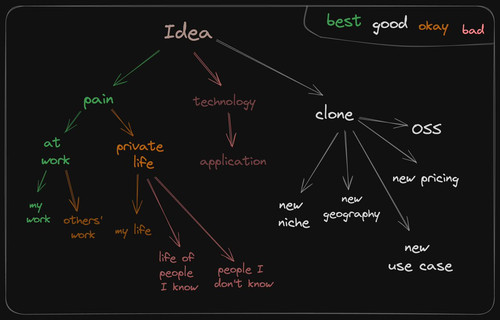 Idea
best good okay bad
pain
technology
clone
OSS
at
work
private
life
application
new pricing
my
work
others'
work
my life
new
niche
new
geography
life of
people
I know
people I
don't know
new
use case